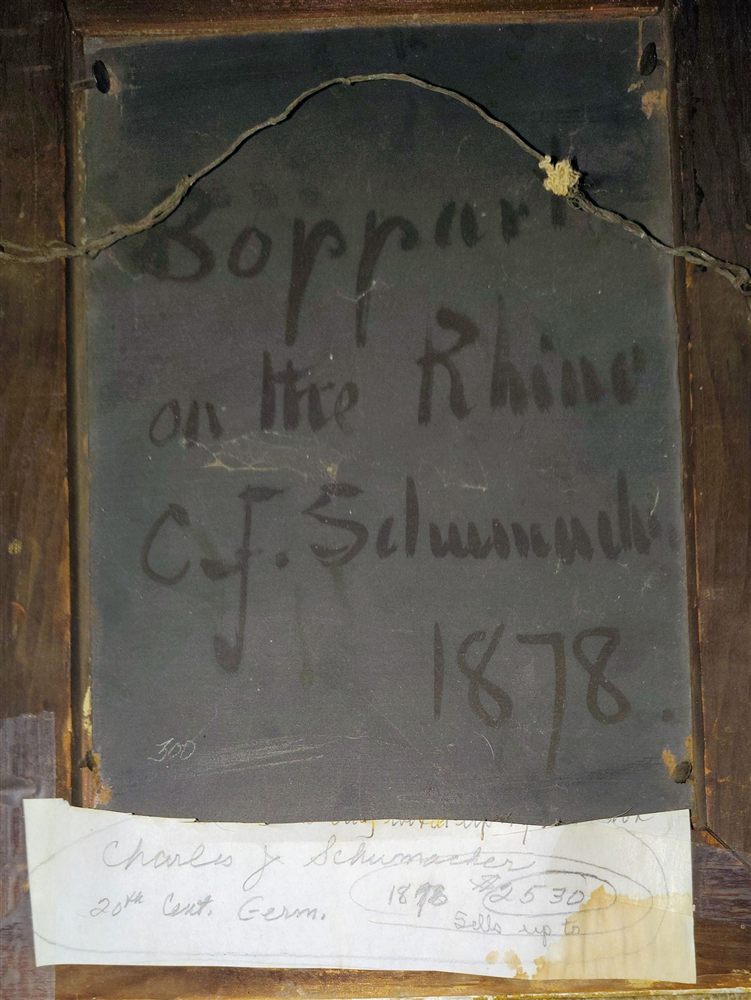 Boppard
on the Rhine
C. J. Schumach
1878.
300
Charles J Schumacher
20th Cent. Germ.
1878 $2530
Sells up to